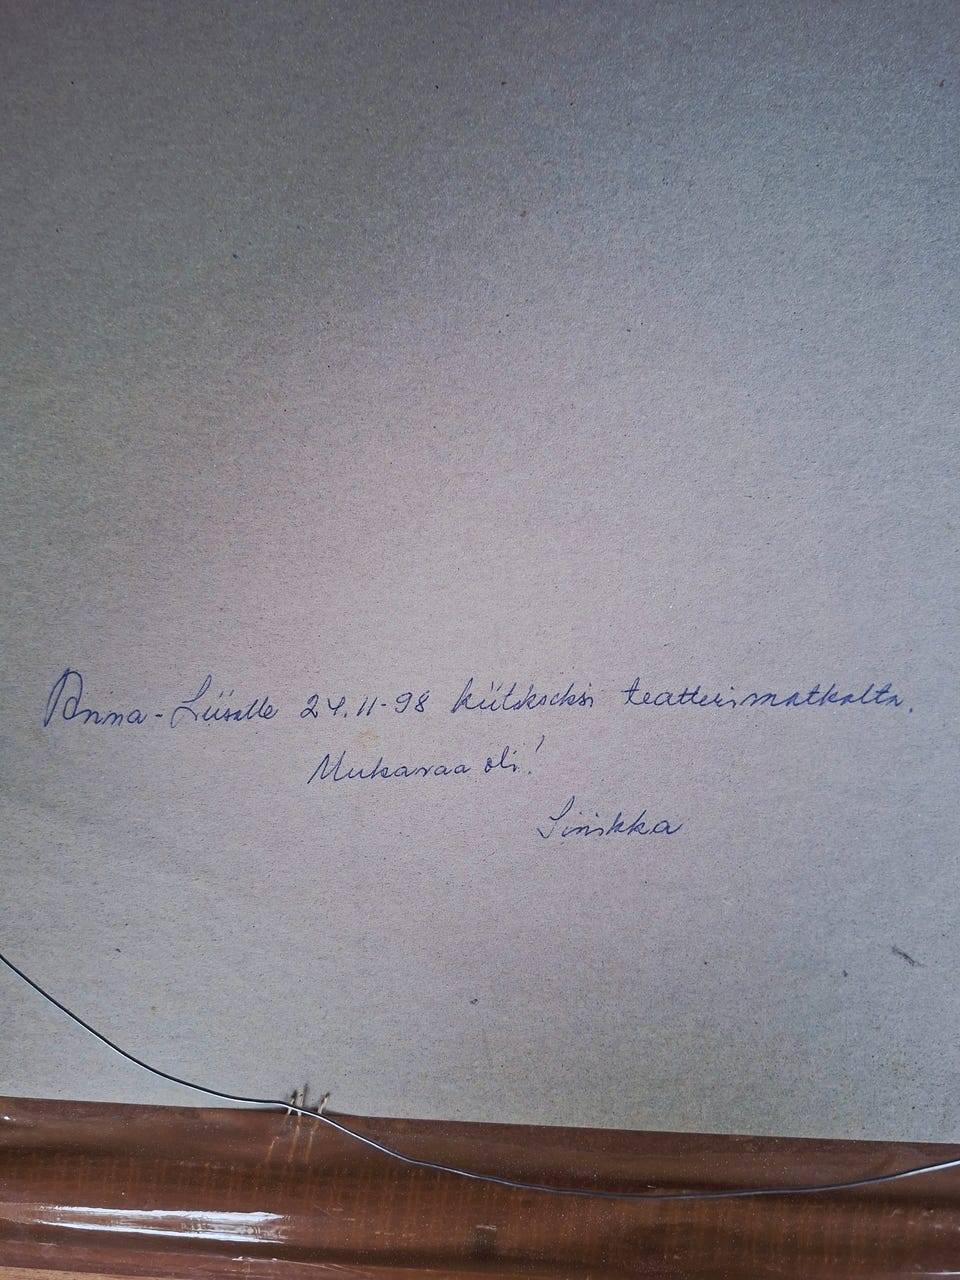 Anna-Liisalle 24.11-98 kiitokseksi teatterimatkalta.
Mukavaa oli!
Sinikka